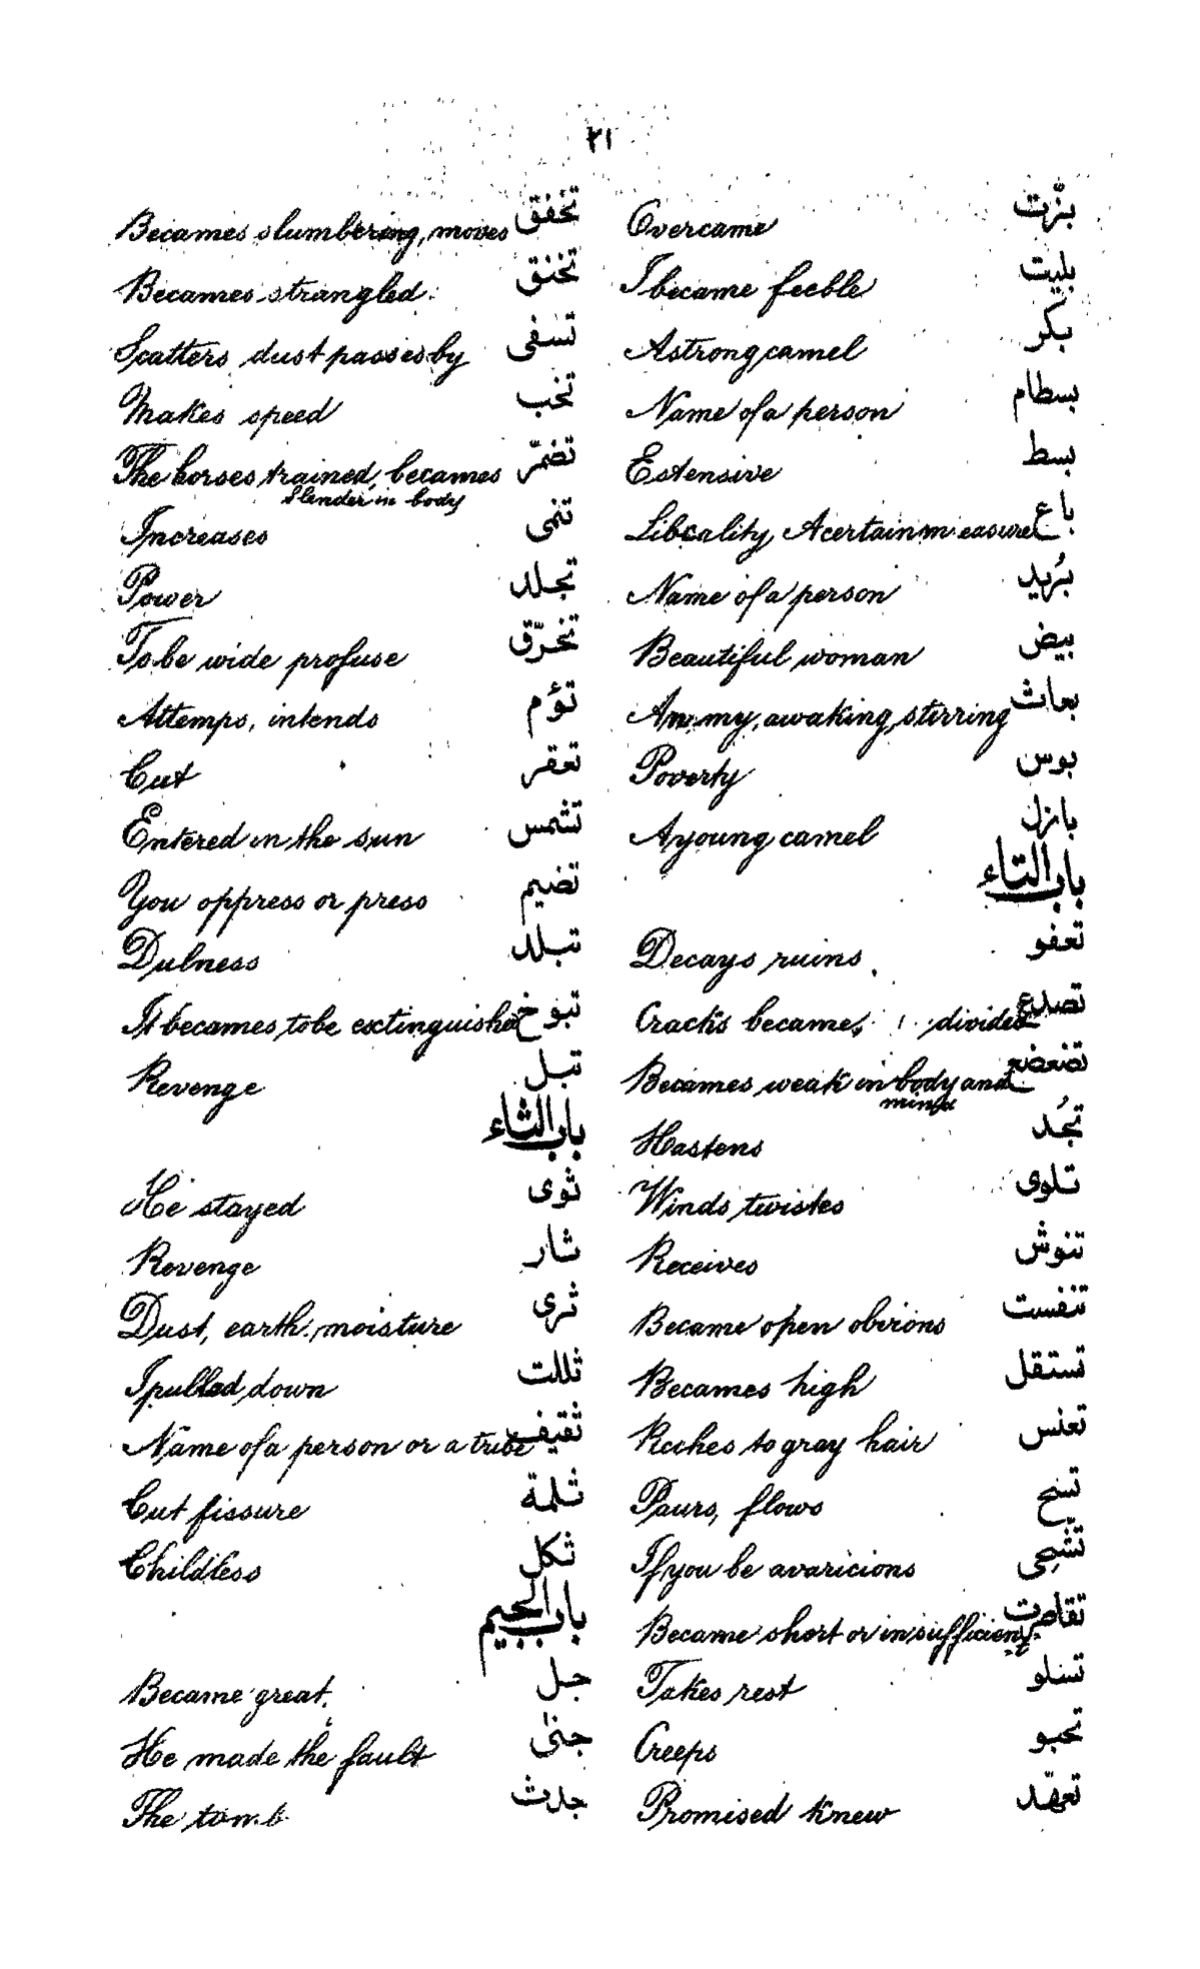 ٢١
بزّت Overcame
بليت I became feeble
بكر A strong camel
بسطام Name of a person
بسط Extensive
باع Liberality, A certain measure
بُريد Name of a person
بيض Beautiful woman
بعاث awaking, stirring
بوس Poverty
بازل A young camel
باب التاء
تعفو Decays ruins
تصدع Cracks becames divided
تضعضع Becames weak in body and
mind
تجُد Hastens
تلوى Winds twistes
تنوش Receives
تنفست Became open obirons
تستقل Becames high
تعنس Riches to gray hair
تسح Paurs, flows
تشحى If you be avaricions
تقاصرت Became short or insufficient
تسلو Takes rest
تحبو Creeps
تعهّد Promised knew
تخفق Becames slumbering, moves
تخنق Becames strangled
تسفى Scatters dust passes by
تخب Makes speed
تضمّر The horses trained, becames
slender in body
تنمى Increases
تجلد Power
تخرّق To be wide profuse
تؤم Attemps, intends
تعقر Cut
تشمس Entered in the sun
تضيم You oppress or press
تبلد Dulness
تبوخ It becames to be extinguished
تبل Revenge
باب الثاء
ثوى He stayed
ثار Revenge
ثرى Dust, earth, moisture
ثللت I pulled down
ثقيف Name of a person or a tribe
ثلمة Cut fissure
ثكل Childless
باب الجيم
جل Became great
جنى He made the fault
جدث The tomb